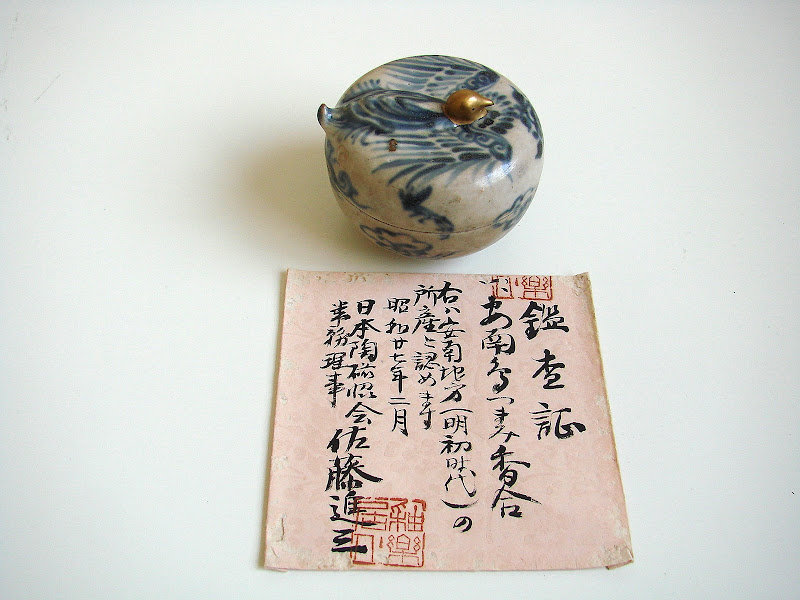 鑑査証
安南鳥つまみ香合
右ハ安南地方(明初時代)の
所産と認めます
昭和廿七年二月
日本陶磁協会佐藤進三
業務理事